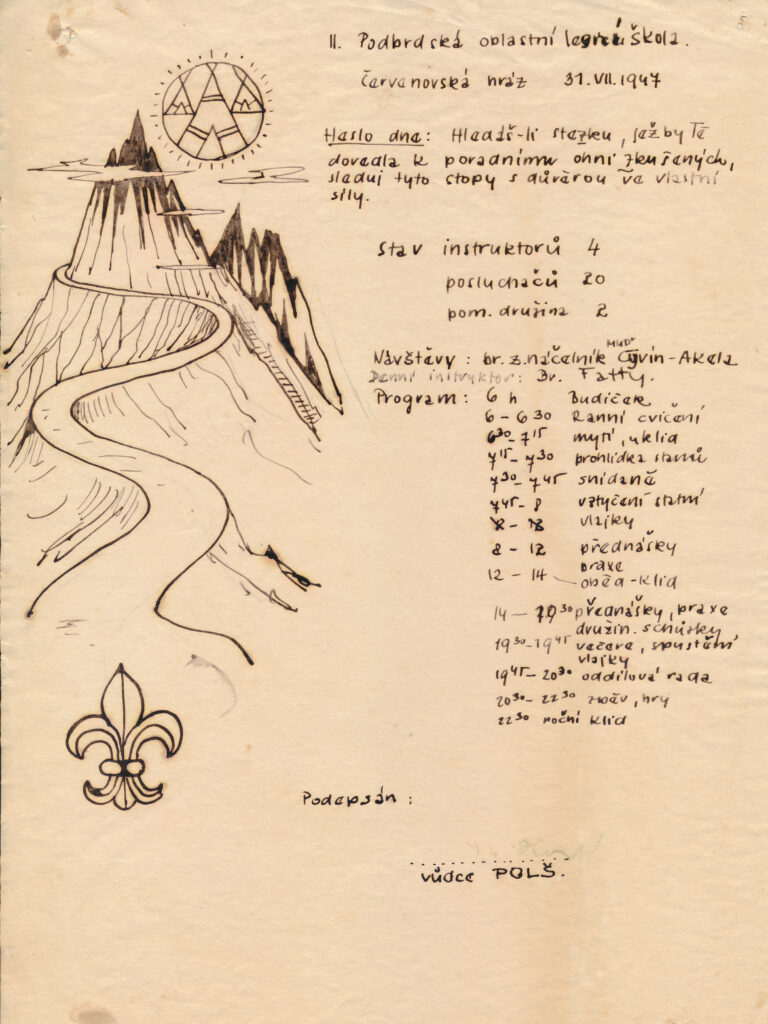 II. Podbrdská oblastní lesní škola.
Červanovská hráz 31.VII.1947
Heslo dne: Hledáš-li stezku, jež by Tě
dovedla k poradnímu ohni zkušených,
sleduj tyto stopy s důvěrou ve vlastní
síly.
Stav instruktorů 4
posluchačů 20
pom. družina 2
Návštěvy: br. z. náčelník MUDr Cyvín-Akela
Denní instruktor: Br. Fatty.
Program: 6 h Budíček
6 - 6 30 Ranní cvičení
6 30 - 7 15 mytí, uklid
7 15 - 7 30 prohlídka stanů
7 30 - 7 45 snídaně
7 45 - 8 vztyčení statní
vlajky
8 - 12 přednášky
praxe
12 - 14 oběd-klid
14 - 19 30 přednášky, praxe
družin. schůzky
19 30 - 19 45 večeře, spuštění
vlajky
19 45 - 20 30 oddílová rada
20 30 - 22 30 zpěv, hry
22 30 noční klid
Podepsán:
vůdce POLŠ.